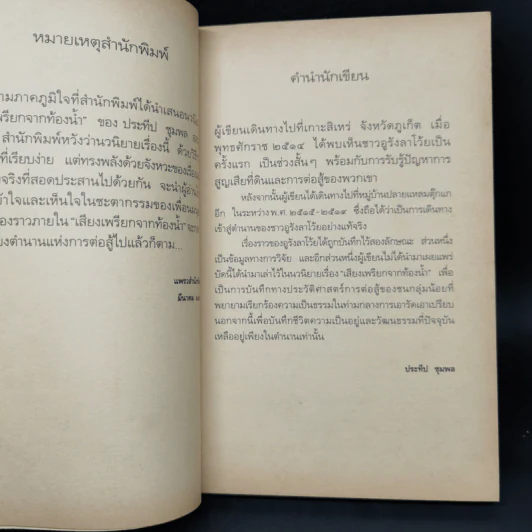 หมายเหตุสำนักพิมพ์
ามภาคภูมิใจที่สำนักพิมพ์ได้นำเสนอ
พรียกจากท้องน้ำ" ของ ประทีป ชุมพล
สำนักพิมพ์หวังว่านวนิยายเรื่องนี้ ด้วย
ที่เรียบง่าย แต่ทรงพลังด้วยจังหวะของ
จริงที่สอดประสานไปด้วยกัน จะนำผู้
ข้าใจและเห็นใจในชะตากรรมของเพื่อน
องราวภายใน "เสียงเพรียกจากท้องน้ำ"
ยงตำนานแห่งการต่อสู้ไปแล้วก็ตาม...
แพรวสำนัก
มีนาคม
คำนำนักเขียน
ผู้เขียนเดินทางไปที่เกาะสิเหร่ จังหวัดภูเก็ต เมื่อ
พุทธศักราช ๒๕๑๔ ได้พบเห็นชาวอูรังลาโว้ยเป็น
ครั้งแรก เป็นช่วงสั้นๆ พร้อมกับการรับรู้ปัญหาการ
สูญเสียที่ดินและการต่อสู้ของพวกเขา
หลังจากนั้นผู้เขียนได้เดินทางไปที่หมู่บ้านปลายแหลมตุ๊กแก
อีก ในระหว่าง พ.ศ. ๒๕๑๕-๒๕๑๙ ซึ่งถือได้ว่าเป็นการเดินทาง
เข้าสู่ตำนานของชาวอูรังลาโว้ยอย่างแท้จริง
เรื่องราวของอูรังลาโว้ยได้ถูกบันทึกไว้สองลักษณะ ส่วนหนึ่ง
เป็นข้อมูลทางการวิจัย และอีกส่วนหนึ่งผู้เขียนไม่ได้นำมาเผยแพร่
บัดนี้ได้นำมาเล่าไว้ในนวนิยายเรื่อง "เสียงเพรียกจากท้องน้ำ" เพื่อ
เป็นการบันทึกทางประวัติศาสตร์การต่อสู้ของชนกลุ่มน้อยที่
พยายามเรียกร้องความเป็นธรรมในท่ามกลางการเอารัดเอาเปรียบ
นอกจากนี้เพื่อบันทึกชีวิตความเป็นอยู่และวัฒนธรรมที่ปัจจุบัน
เหลืออยู่เพียงในตำนานเท่านั้น
ประทีป ชุมพล